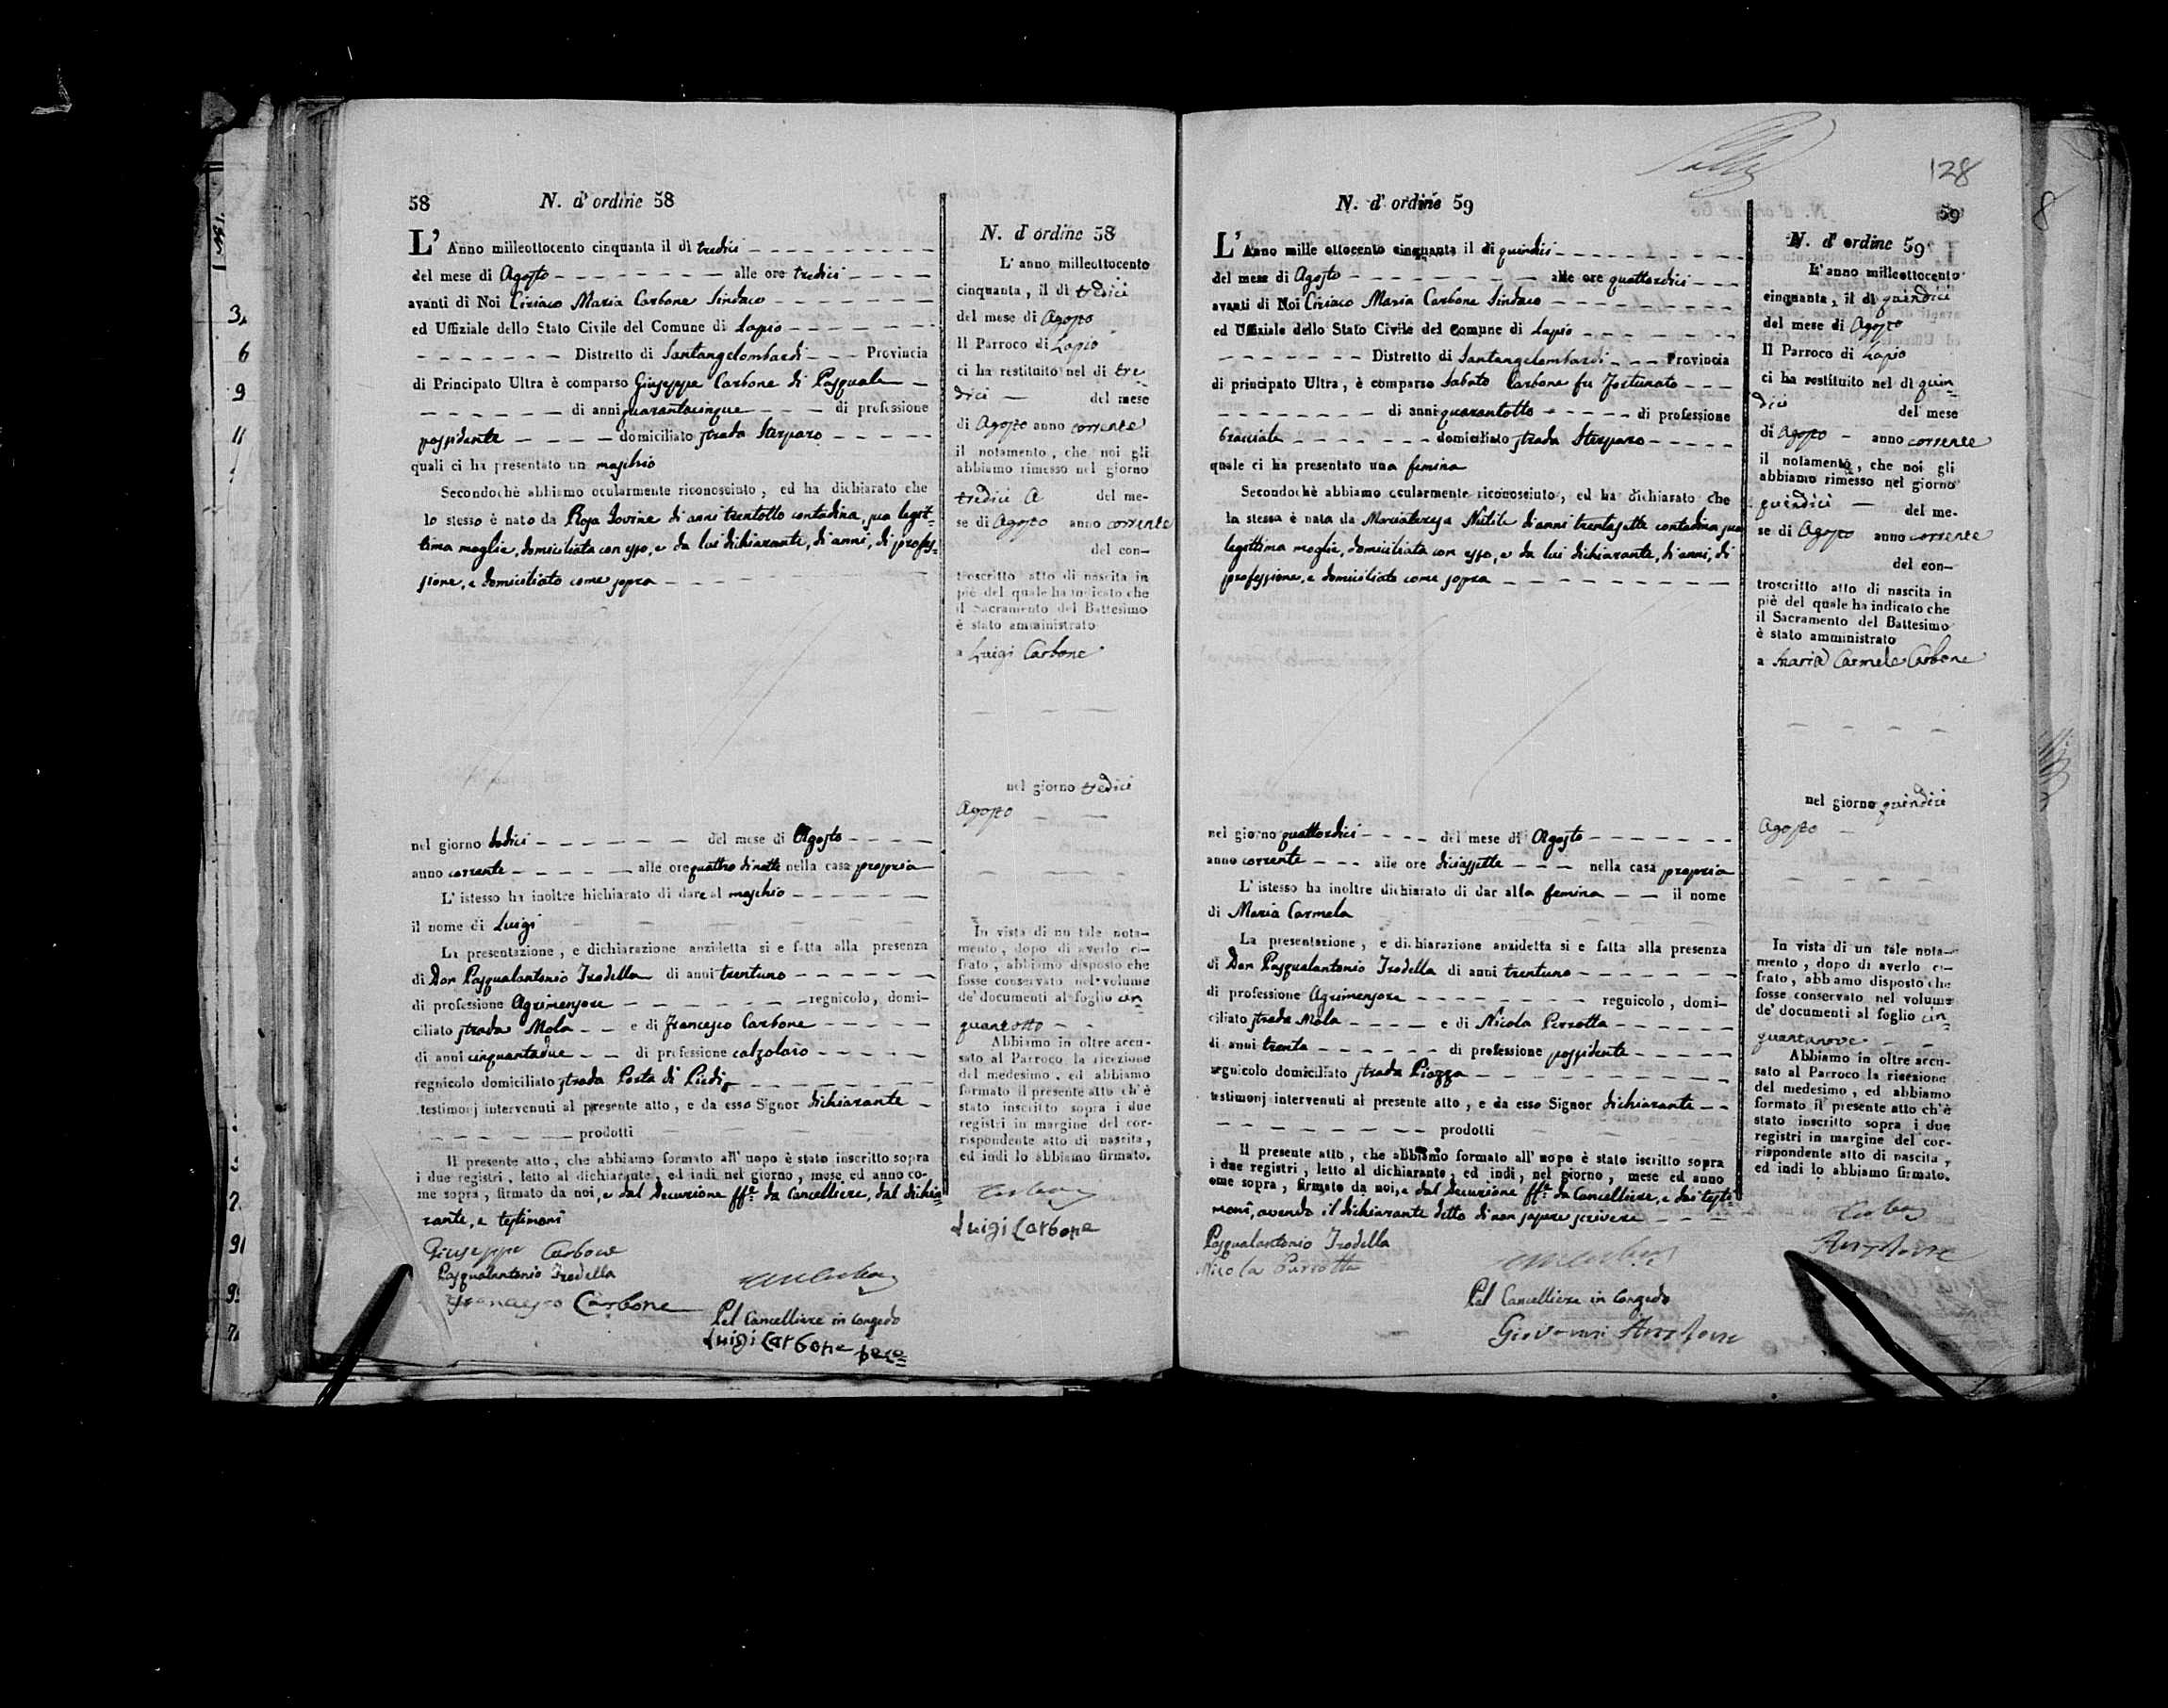 58
N. d' ordine 58
L' Anno milleottocento cinquanta il dì tredici
del mese di Agosto alle ore tredici
avanti di Noi Ciriaco Maria Carbone Sindaco
ed Uffiziale dello Stato Civile del Comune di Lapio
Distretto di Santangelombardi Provincia
di Principato Ultra è comparso Giuseppe Carbone di Pasquale
di anni quarantacinque di professione
possidente domiciliato strada Sterparo
quali ci ha presentato un maschio
Secondochè abbiamo ocularmente riconosciuto, ed ha dichiarato che
lo stesso è nato da Rosa Iovine di anni trentotto contadina, sua legit=
tima moglie, domiciliata con esso, e da lui dichiarante, di anni, di profes=
sione, e domiciliato come sopra
nel giorno dodici del mese di Agosto
anno corrente alle ore quattro di notte nella casa propria
L' istesso ha inoltre hichiarato di dare al maschio
il nome di Luigi
La presentazione, e dichiarazione anzidetta si e fatta alla presenza
di Don Pasqualantonio Trodella di anni trentuno
di professione Agrimensore regnicolo, domi-
ciliato strada Mola e di Francesco Carbone
di anni cinquantadue di professione calzolaio
regnicolo domiciliato strada Porta di Piedi
testimonj intervenuti al presente atto, e da esso Signor dichiarante
prodotti
Il presente atto, che abbiamo formato all' uopo è stato inscritto sopra
i due registri, letto al dichiarante, ed indi nel giorno, mese ed anno co-
me sopra, firmato da noi, e dal Decurione ff.e da Cancelliere, dal dichia=
rante, e testimoni
Giuseppe Carbone
Pasqualantonio Trodella
Francesco Carbone
Pel Cancelliere in congedo
Luigi Carbone
N. d' ordine 58
L' anno milleottocento
cinquanta, il dì tredici
del mese di Agosto
Il Parroco di Lapio
ci ha restituito nel di tre=
dici del mese
di Agosto anno corrente
il notamento, che noi gli
abbiamo rimesso nel giorno
tredici A del me-
se di Agosto anno corrente
del con-
troscritto atto di nascita in
piè del quale ha indicato che
il Sacramento del Battesimo
è stato amministrato
a Luigi Carbone
nel giorno tredici
Agosto
In vista di un tale nota-
mento, dopo di averlo ci-
frato, abbiamo disposto che
fosse conservato nel volume
de' documenti al foglio cin=
quantotto
Abbiamo in oltre accu-
sato al Parroco la ricezione
del medesimo, ed abbiamo
formato il presente atto ch'è
stato inscritto sopra i due
registri in margine del cor-
rispondente atto di nascita,
ed indi lo abbiamo firmato.
Luigi Carbone
128
59
N. d' ordine 59
L' Anno mille ottocento cinquanta il di quindici
del mese di Agosto alle ore quattordici
avanti di Noi Ciriaco Maria Carbone Sindaco
ed Uffiziale dello Stato Civile del Comune di Lapio
Distretto di Santangelombardi Provincia
di principato Ultra, è comparso Sabato Carbone fu Fortunato
di anni quarantotto di professione
bracciale domiciliato strada Sterparo
quale ci ha presentato una femina
Secondochè abbiamo ocularmente riconosciuto, ed ha dichiarato che
la stessa è nata da Mariateresa Nutile di anni trentasette contadina sua
legittima moglie, domiciliata con esso, e da lui dichiarante, di anni, di
professione, e domiciliato come sopra
nel giorno quattordici del mese di Agosto
anno corrente alle ore diciassette nella casa propria
L' istesso ha inoltre dichiarato di dar alla femina il nome
di Maria Carmela
La presentazione, e dichiarazione anzidetta si e fatta alla presenza
di Don Pasqualantonio Trodella di anni trentuno
di professione Agrimensore regnicolo, domi-
ciliato strada Mola e di Nicola Perrotta
di anni trenta di professione possidente
regnicolo domiciliato strada Piazza
testimonj intervenuti al presente atto, e da esso Signor dichiarante
prodotti
Il presente atto, che abbiamo formato all' uopo è stato iscritto sopra
i due registri, letto al dichiarante, ed indi, nel giorno, mese ed anno
ome sopra, firmato da noi, e dal Decurione ff.e da Cancelliere, e dai testi=
moni, avendo il dichiarante detto di non sapere scrivere
Pasqualantonio Trodella
Nicola Perrotta
Pel Cancelliere in congedo
Giovanni
N. d' ordine 59
L' anno milleottocento
cinquanta, il di quindici
del mese di Agosto
Il Parroco di Lapio
ci ha restituito nel dì quin=
dici del mese
di Agosto anno corrente
il notamento, che noi gli
abbiamo rimesso nel giorno
quindici del me-
se di Agosto anno corrente
del con-
troscritto atto di nascita in
piè del quale ha indicato che
il Sacramento del Battesimo
è stato amministrato
a Maria Carmela Carbone
nel giorno quindici
Agosto
In vista di un tale nota-
mento, dopo di averlo ci-
frato, abbiamo disposto che
fosse conservato nel volume
de' documenti al foglio cin=
quantanove
Abbiamo in oltre accu-
sato al Parroco la ricezione
del medesimo, ed abbiamo
formato il presente atto ch'è
stato inscritto sopra i due
registri in margine del cor-
rispondente atto di nascita,
ed indi lo abbiamo firmato.